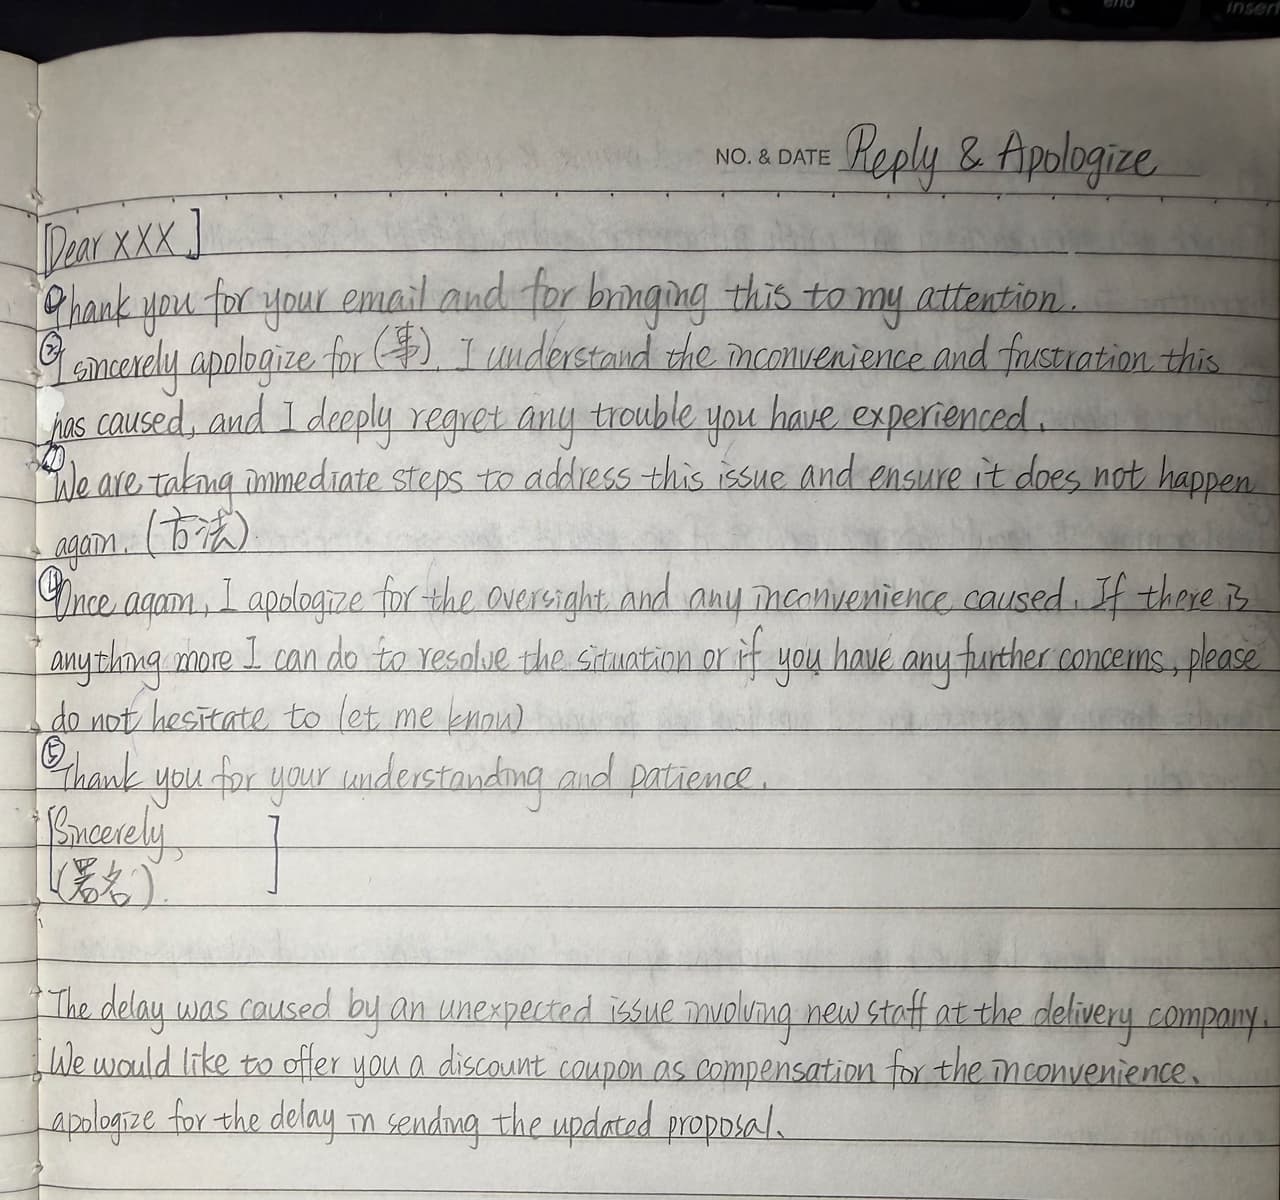 end
insert
NO. & DATE Reply & Apologize
[Dear XXX]
①Thank you for your email and for bringing this to my attention.
②I sincerely apologize for (事). I understand the inconvenience and frustration this
has caused, and I deeply regret any trouble you have experienced.
We are taking immediate steps to address this issue and ensure it does not happen
again. (方法).
④Once again, I apologize for the oversight and any inconvenience caused. If there is
anything more I can do to resolve the situation or if you have any further concerns, please
do not hesitate to let me know
⑤Thank you for your understanding and patience.
[Sincerely, ]
(署名).
The delay was caused by an unexpected issue involving new staff at the delivery company.
We would like to offer you a discount coupon as compensation for the inconvenience.
apologize for the delay in sending the updated proposal.